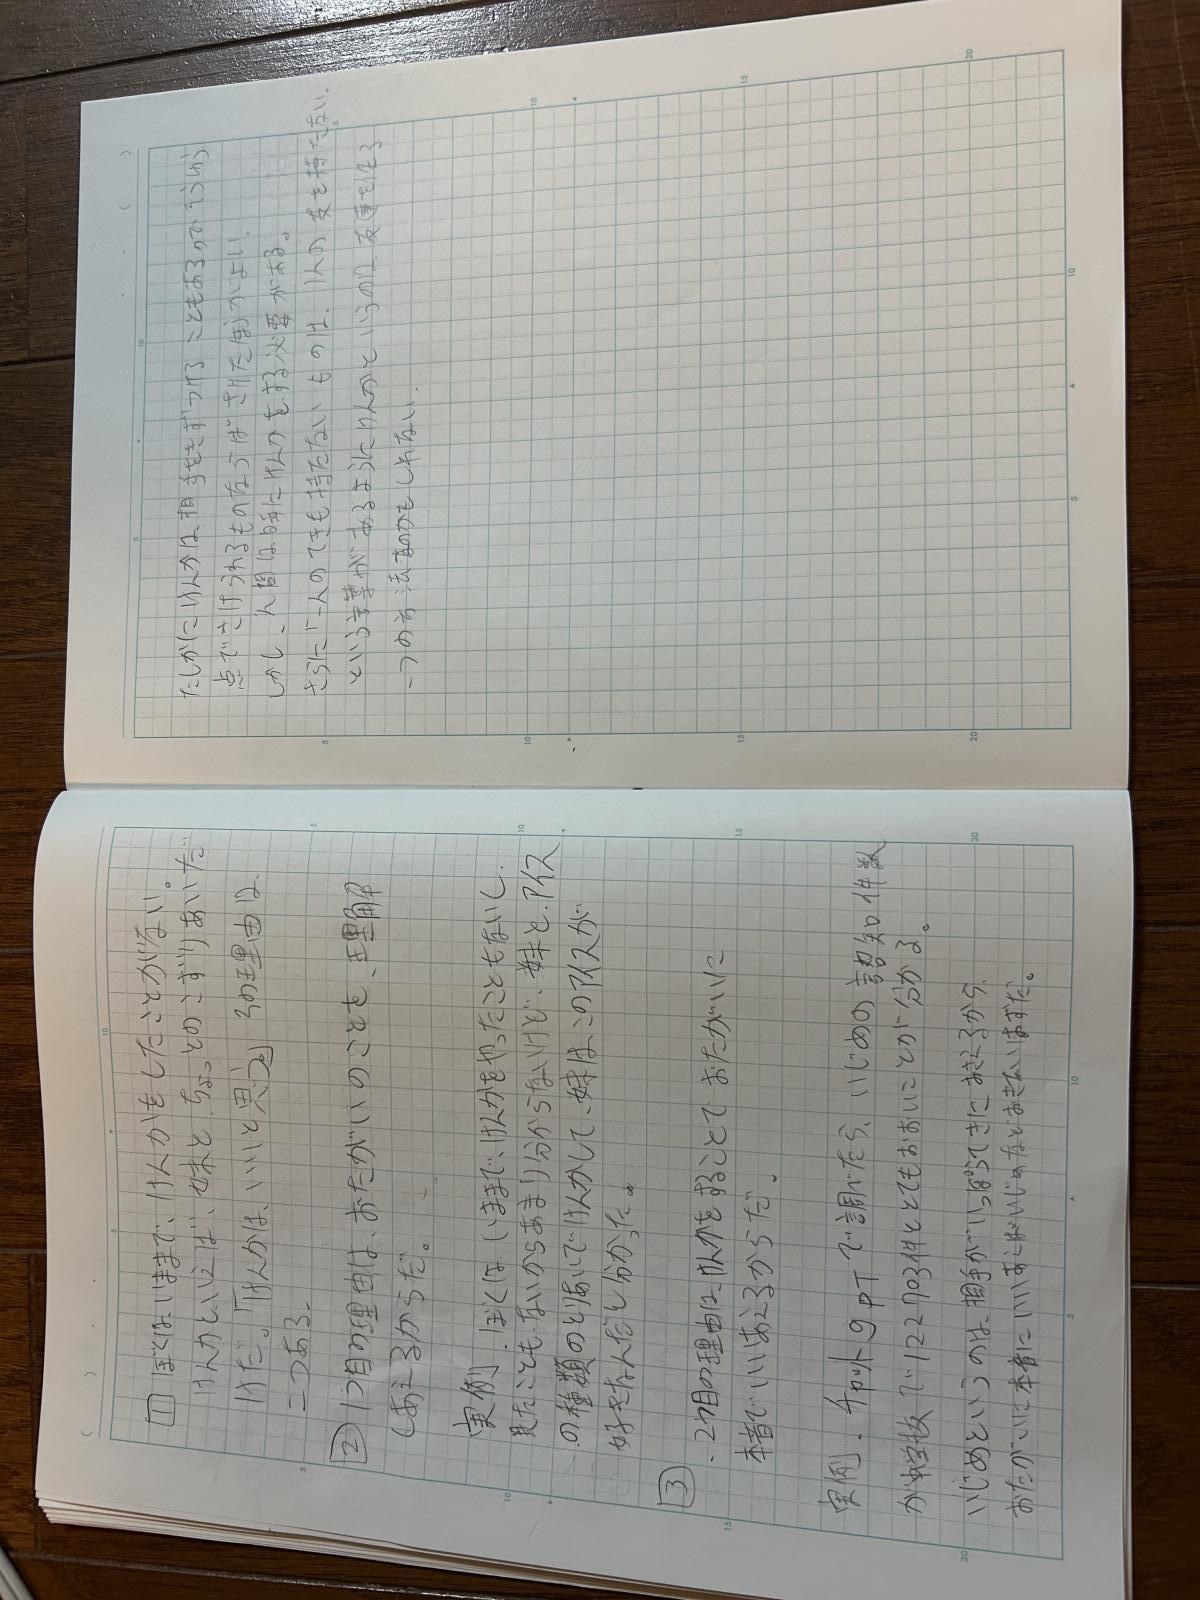 1 ぼくはいままで、けんかをしたことがない。
けんかといえば、妹と、ちょっとのこずりあいだ
けだ。「けんかは、いいと思う」その理由は、
二つある。
2 1つ目の理由は、おたがいのことを、理解
しあえるからだ。
実例. ぼくは、いままで、けんかをやったこともないし、
見たこともないからあまり分からないけど、妹と、アイス
の種類のとりあいでけんかして、妹はこのアイスが
好きなんだと分かった。
3
・2つ目の理由は、けんかをすることで おたがいに
本音でいいあえるからだ。
実例. チャットgpTで調べたら、いじめの認知件数
が中学校で122703件ととてもおおいことが分かる。
いじめというのは、相手がいっぽうてきにおさえるから、
おたがいに本音にいいあえばいじめなどおきないはずだ。
たしかにけんかは相手をきずつけることもあるのでそういう
点でさけられるものならばさけた方がよい.
しかし、人間は時にけんかをする必要がある。
さらに「一人のてきも持たないものは、一人の友も持たない.
という言葉があるようにけんかというのは友達を作る
一つの方法なのかもしれない.